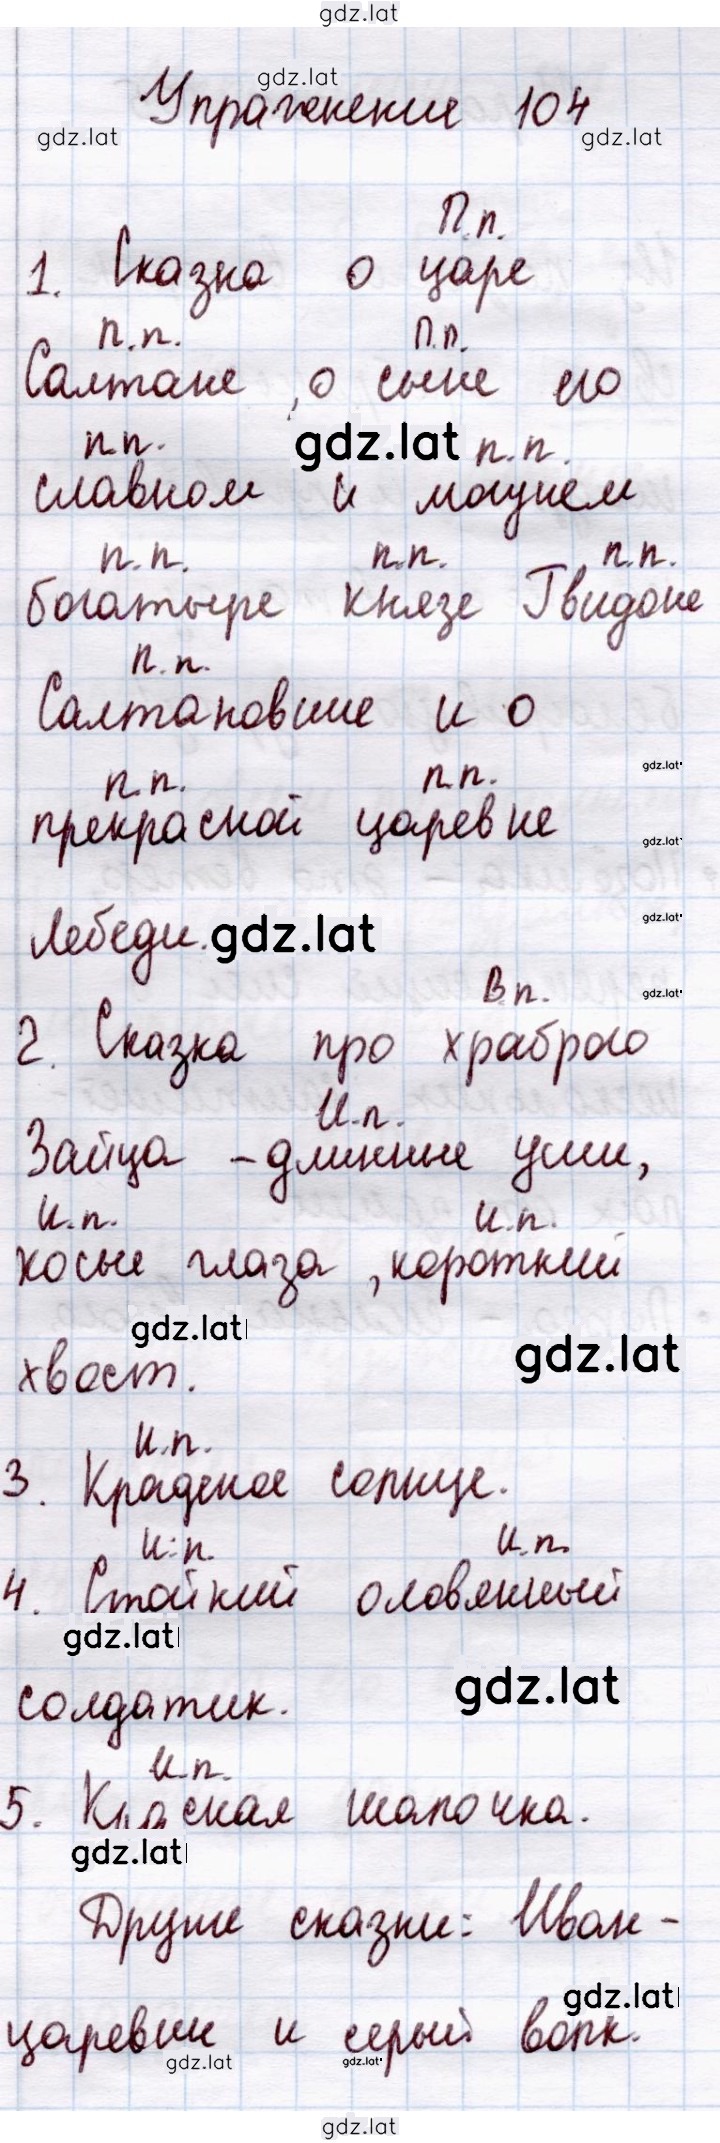 gdz.lat
gdz.lat
Упражнение 104
gdz.lat gdz.lat
П.п.
1. Сказка о царе
п.п. П.п.
Салтане, о сыне его
п.п. gdz.lat п.п.
славном и могучем
п.п. п.п. п.п.
богатыре князе Гвидоне
п.п.
Салтановиче и о
п.п. п.п. gdz.lat
прекрасной царевне gdz.lat
Лебеди. gdz.lat gdz.lat
В.п. gdz.lat
2. Сказка про храброго
И.п.
Зайца - длинные уши,
И.п. И.п.
косые глаза, короткий
gdz.lat gdz.lat
хвост.
И.п.
3. Краденое солнце.
И.п. И.п.
4. Стойкий оловянный
gdz.lat gdz.lat
солдатик.
И.п.
5. Красная шапочка.
gdz.lat
Другие сказки: Иван-
gdz.lat
царевич и серый волк.
gdz.lat gdz.lat
gdz.lat